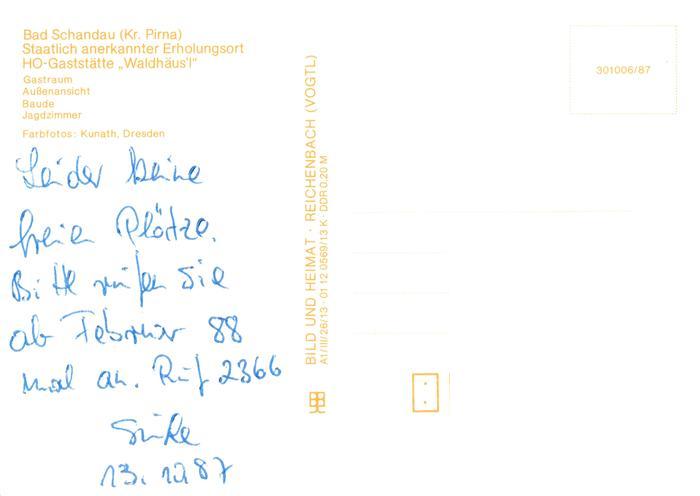 Bad Schandau (Kr. Pirna)
Staatlich anerkannter Erholungsort
HO-Gaststätte „Waldhäus'l“
Gastraum
Außenansicht
Baude
Jagdzimmer
Farbfotos: Kunath, Dresden
Leider keine
freien Plätze.
Bitte rufen Sie
ab Februar 88
mal an. Ruf 2366
13. 10 87
BILD UND HEIMAT · REICHENBACH (VOGTL)
A1/III/26/13 · 01 12 0569/13 K · DDR 0,20 M
301006/87